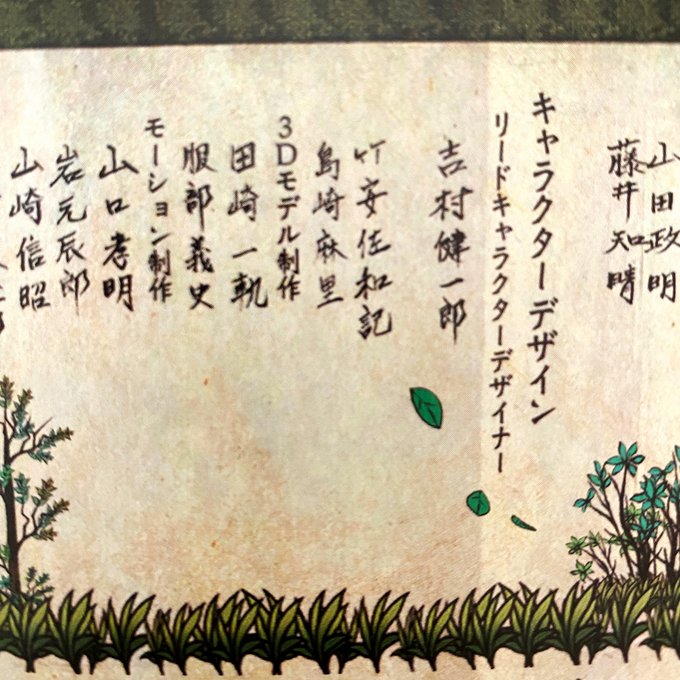 山田政明
藤井知晴
キャラクターデザイン
リードキャラクターデザイナー
吉村健一郎
竹安佐和記
島崎麻里
3Dモデル制作
田崎一軌
服部義史
モーション制作
山口孝明
岩元辰郎
山崎信昭